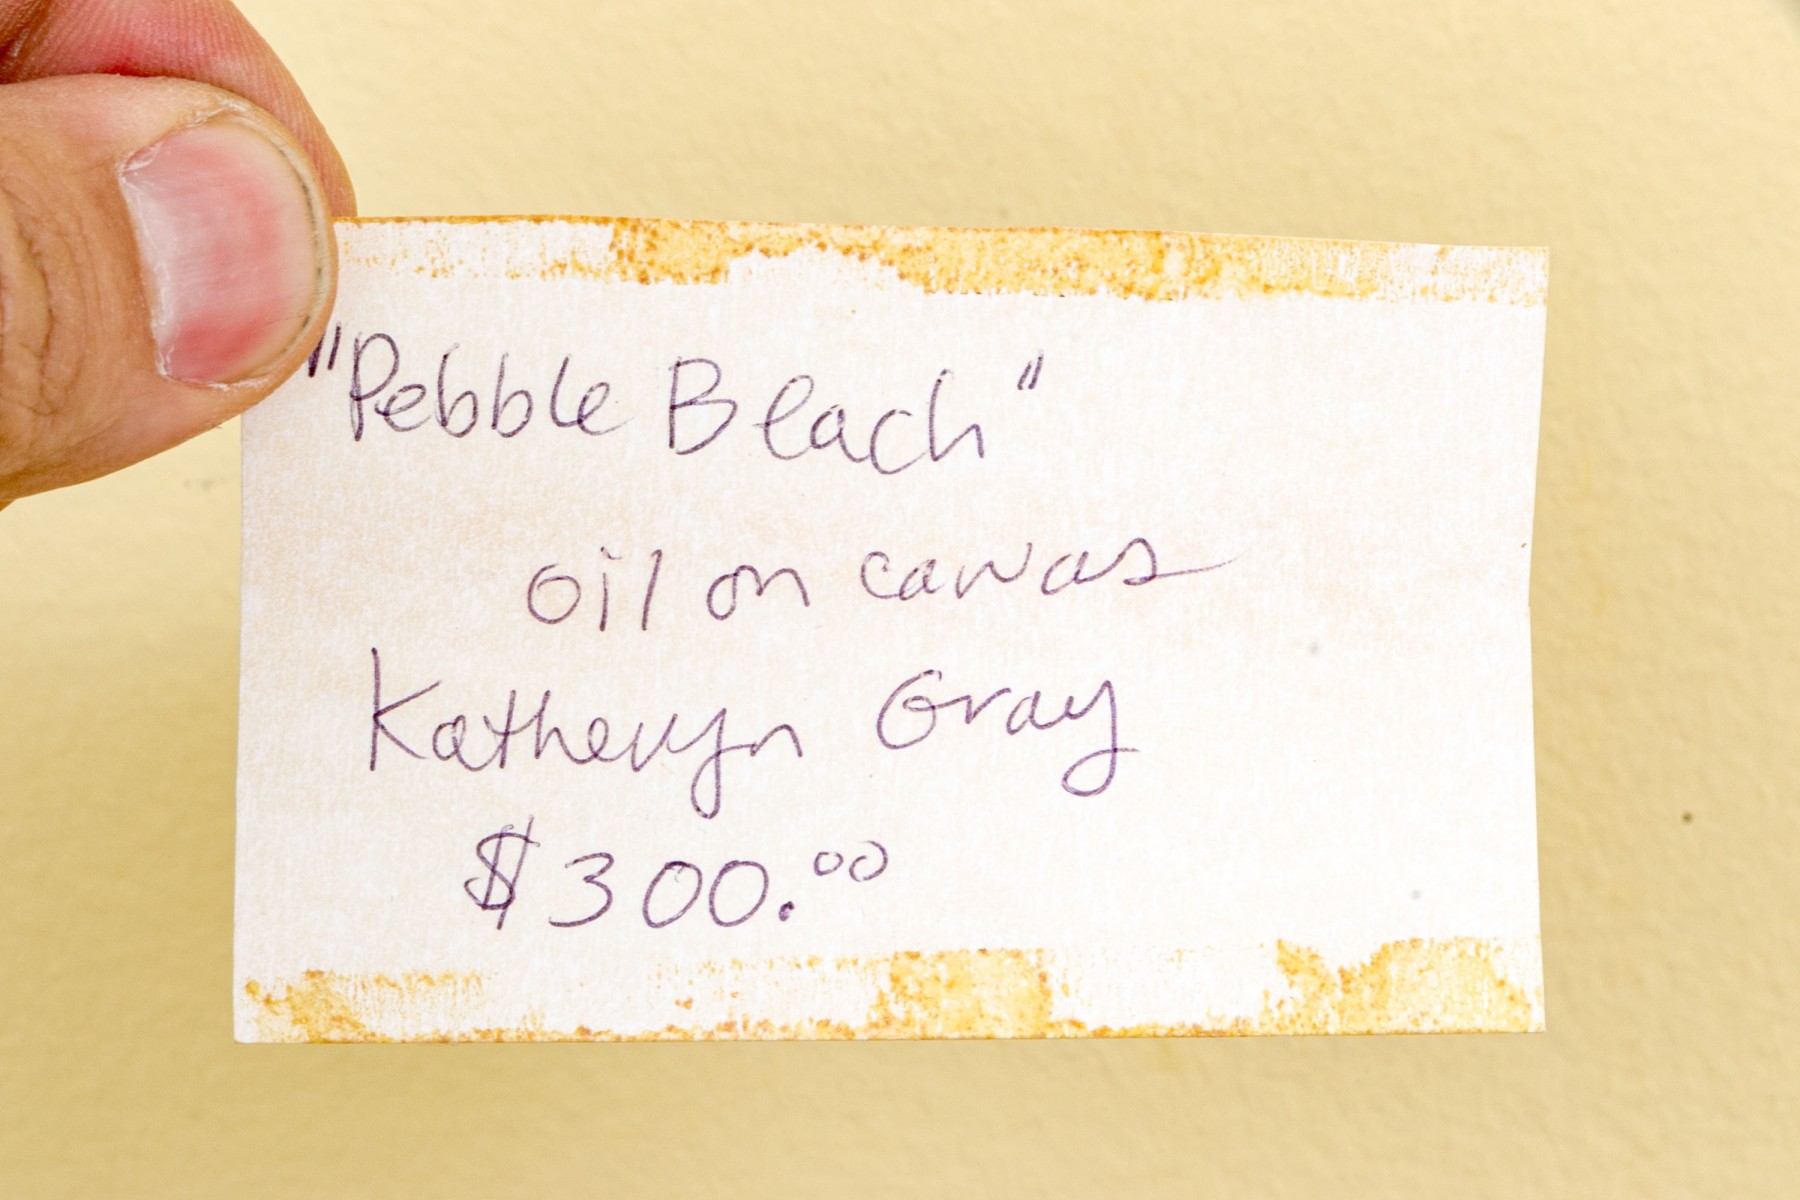 "Pebble Beach"
oil on canvas
Katheryn Gray
$300.00